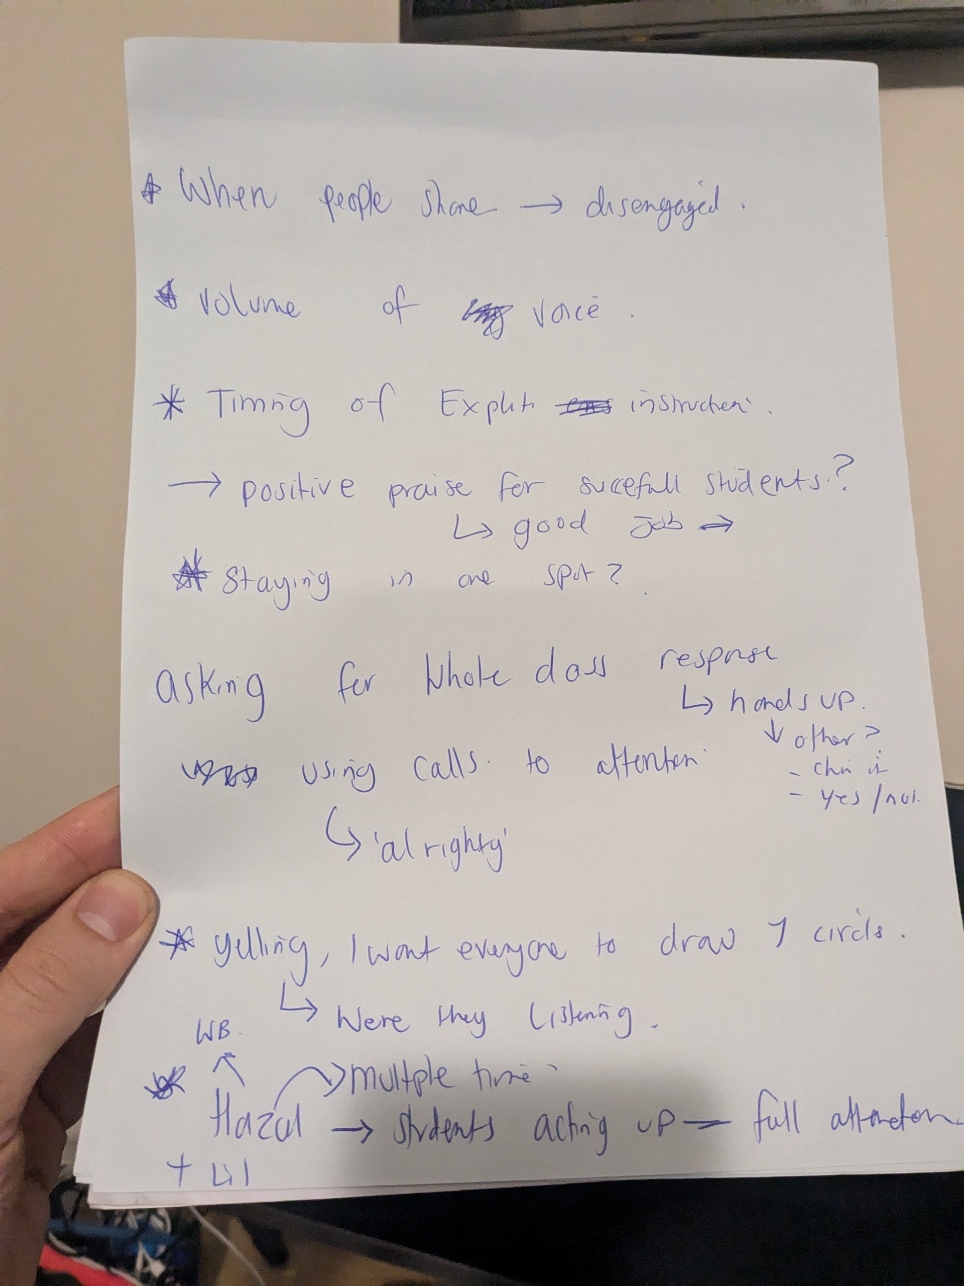 * When people share → disengaged.
* Volume of voice.
* Timing of Explit instruction.
→ positive praise for sucefull students?
↳ good Job →
* Staying in one spot?
asking for Whole class response
↳ hands up.
↓ other?
- yes/no.
using calls to attention
↳ 'alrighty'
* yelling, I want everyone to draw 7 circls.
↳ Were they listening.
WB.
multple time
Hazel → students acting up — full attention
+ Lil